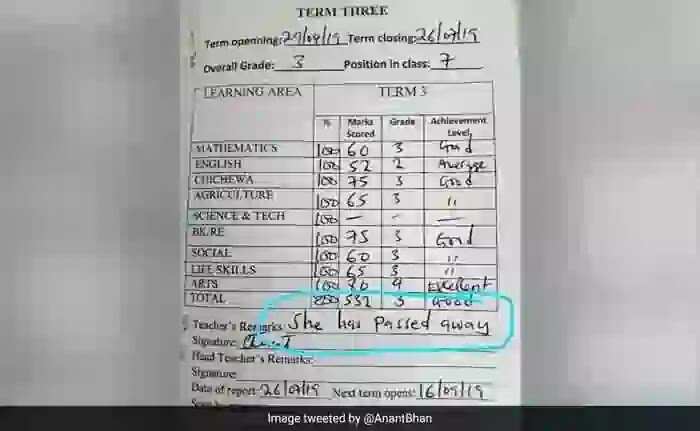 TERM THREE
Term openning: 29/04/19 Term closing: 26/07/19
Overall Grade: 3 Position in class: 7
LEARNING AREA TERM 3
% Marks Scored Grade Achievement Level
MATHEMATICS 100 60 3 Good
ENGLISH 100 52 2 Average
CHICHEWA 100 75 3 Good
AGRICULTURE 100 65 3 "
SCIENCE & TECH 100 — – —
BK/RE 100 75 3 Good
SOCIAL 100 60 3 "
LIFE SKILLS 100 65 3 "
ARTS 100 80 4 Excellent
TOTAL 800 532 3 Good
Teacher's Remarks: She has passed away
Signature:
Head Teacher's Remarks:
Signature:
Date of report: 26/07/19 Next term opens: 16/09/19
Image tweeted by @AnantBhan